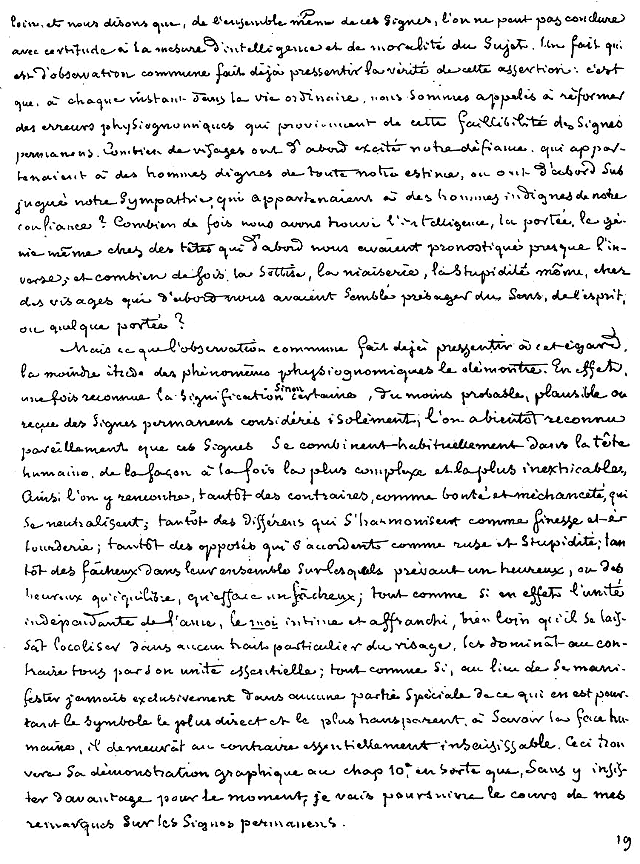 loin, et nous disons que, de l'ensemble même de ces signes, l'on ne peut pas conclure
avec certitude à la mesure d'intelligence et de moralité du Sujet. Un fait qui
est d'observation commune fait déjà pressentir la vérité de cette assertion: c'est
que, à chaque instant dans la vie ordinaire, nous sommes appelés à réformer
des erreurs physiognomiques qui proviennent de cette faillibilité des signes
permanens. Combien de visages ont d'abord excité notre défiance, qui appar-
tenaient à des hommes dignes de toute notre estime, ou ont d'abord sub
jugué notre Sympathie, qui appartenaient à des hommes indignes de notre
confiance? Combien de fois nous avons trouvé l'intelligence, la portée, le gé-
nie même chez des têtes qui d'abord nous avaient pronostiqué presque l'in-
verse; et combien de fois la Sottise, la niaiserie, la Stupidité même, chez
des visages qui d'abord nous avaient semblé présager du Sens, de l'esprit,
ou quelque portée?
Mais ce que l'observation commune fait dejà pressentir à cet égard,
la moindre étude des phénomènes physiognomiques le démontre. En effet,
une fois reconnue la signification Sinon certaine, du moins probable, plausible ou
reçue des Signes permanens considérés isolément, l'on a bientôt reconnu
pareillement que ces Signes Se combinent habituellement dans la tête
humaine, de la façon à la fois la plus complexe et la plus inextricable.
Ainsi l'on y rencontre, tantôt des contraires, comme bonté et méchanceté, qui
se neutralisent; tantôt des différens qui S'harmonisent comme finesse et é-
tourderie; tantôt des opposés qui s'accordent comme ruse et Stupidité; tan
tôt des fâcheux dans leur ensemble Sur lesquels prévaut un heureux, ou des
heureux qu'équilibre, qu'efface un fâcheux; tout comme si en effet l'unité
indépendante de l'ame, le moi intime et affranchi, bien loin qu'il se lais-
sât localiser dans aucun trait particulier du visage, les dominât au con-
traire tous par son unité essentielle; tout comme Si, au lieu de Se mani-
fester jamais exclusivement dans aucune partie Spéciale de ce qui en est pour-
tant le Symbole le plus direct et le plus transparent, à Savoir la face hu-
maine, il demeurât au contraire essentiellement insaisissable. Ceci trou
vera Sa démonstration graphique au chap 10e en sorte que, Sans y insis-
ter davantage pour le moment, je vais poursuivre le cours de mes
remarques Sur les Signes permanens.
19